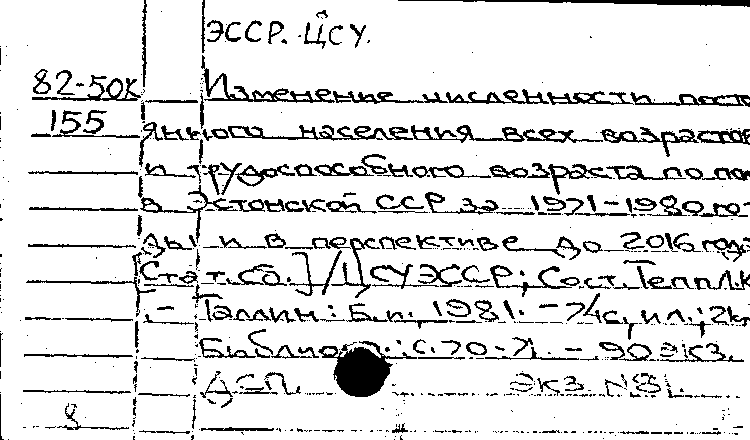 ЭССР. ЦСУ.
82-50К Изменение численности посто
155 янного населения всех возрастов
и трудоспособного возраста по по
в Эстонской ССР за 1971-1980 го-
ды и в перспективе до 2016 года
[Стат.сб.]/ЦСУ ЭССР; Сост. Тепп Л.К
.- Таллин: Б.и., 1981. - 74с, ил.; 2
Библиогр.: с.70-71. - 90 экз.
ДСП. Экз N 81.
8